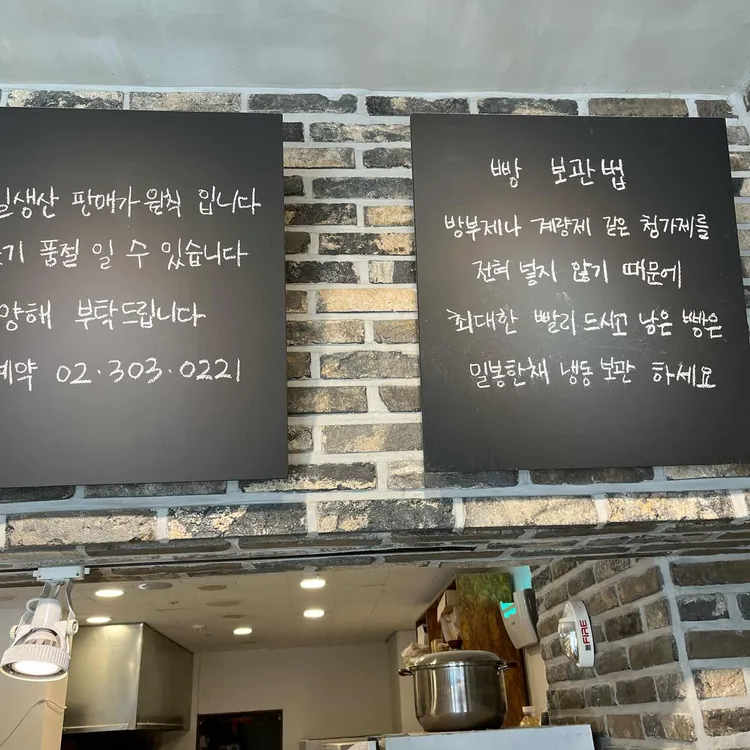 일생산 판매가 원칙 입니다
기 품절 일 수 있습니다
양해 부탁드립니다
예약 02·303·0221
빵 보관법
방부제나 계량제 같은 첨가제를
전혀 넣지 않기 때문에
최대한 빨리 드시고 남은 빵은
밀봉한채 냉동 보관 하세요
FIRE